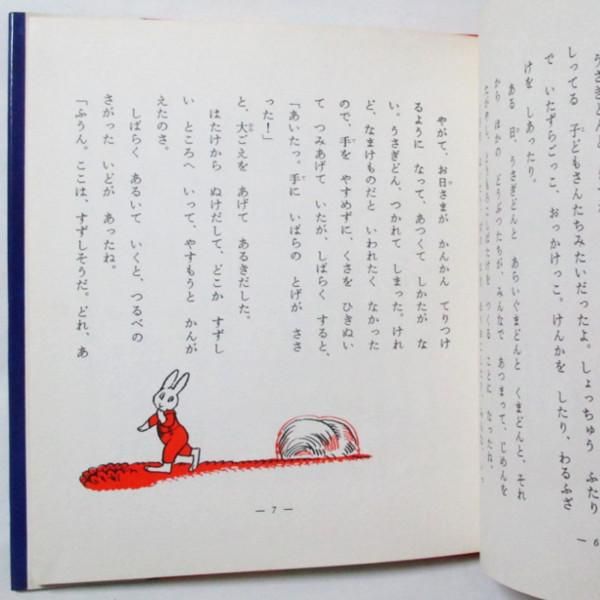 しってる 子どもさんたちみたいだったよ。しょっちゅう ふたり
で いたずらごっこ、おっかけっこ。けんかを したり、わるふざ
けを しあったり。
ある 日、うさぎどんと あらいぐまどんと くまどんと、それ
から ほかの どうぶつたちが、みんなで あつまって、じめんを
— 6
やがて、お日さまが かんかん てりつけ
るように なって、あつくて しかたが な
い。うさぎどん、つかれて しまった。けれ
ど、なまけものだと いわれたく なかった
ので、手を やすめずに、くさを ひきぬい
て つみあげて いたが、しばらく すると、
「あいたっ。手に いばらの とげが ささ
った!」
と、大ごえを あげて あるきだした。
はたけから ぬけだして、どこか すずし
い ところへ いって、やすもうと かんが
えたのさ。
しばらく あるいて いくと、つるべの
さがった いどが あったね。
「ふうん。ここは、すずしそうだ。どれ、あ
— 7 —